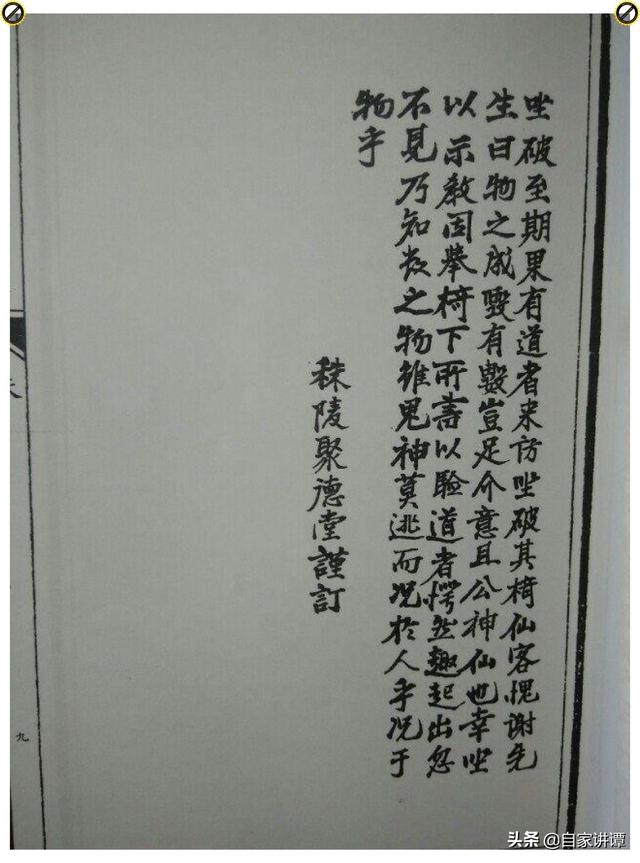 坐破至期果有道者来访坐破其椅仙客愧谢先
生曰物之成毁有数岂足介意且公神仙也幸坐
以示教因举椅下所书以验道者愕然趣起出忽
不見乃知数之物雖鬼神莫逃而况於人乎况于
物乎
秣陵聚德堂謹訂
九
头条 @自家讲谭